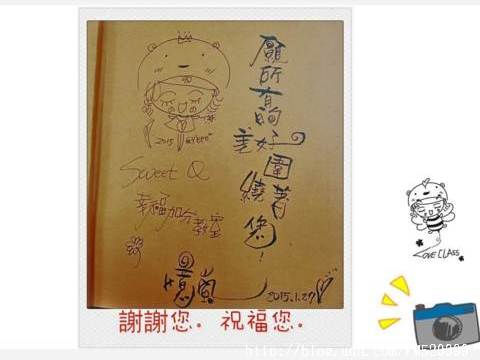 願所有的美好
圍繞著您！
2015
Sweet Q
幸福加分教室
2015.1.27
LOVE CLASS
謝謝您. 祝福您.